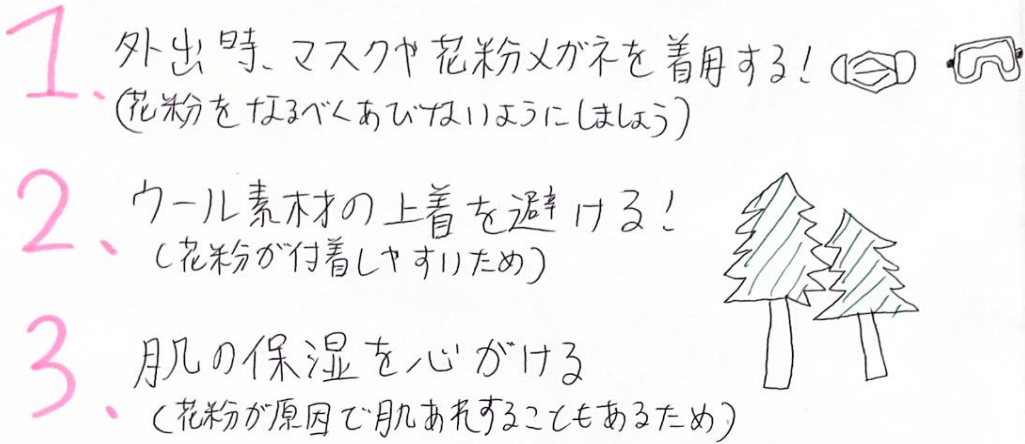 1、外出時、マスクや花粉メガネを着用する！
(花粉をなるべくあびないようにしましょう)
2、ウール素材の上着を避ける！
(花粉が付着しやすいため)
3、肌の保湿を心がける
(花粉が原因で肌あれすることもあるため)